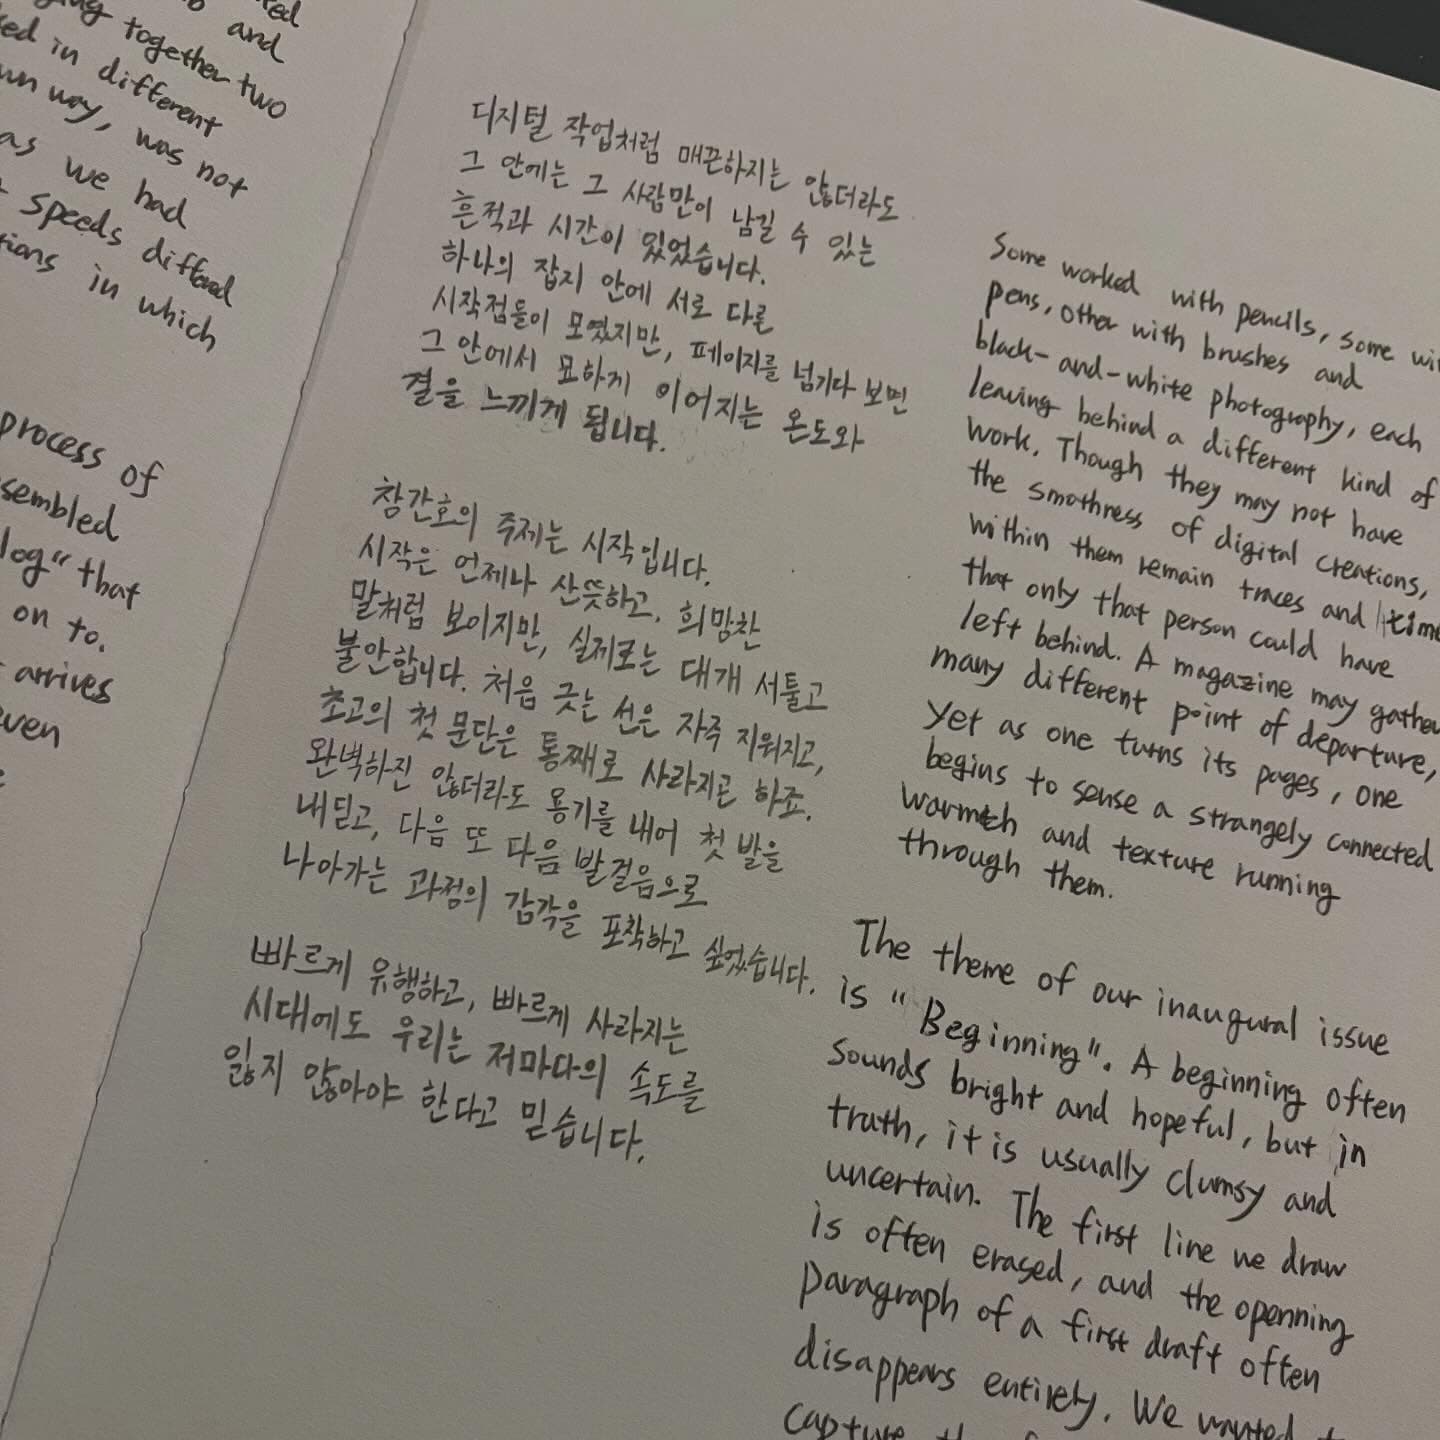 and
together two
in different
way, was not
as we had
speeds differed
in which
process of
that
on to.
arrives
디지털 작업처럼 매끈하지는 않더라도
그 안에는 그 사람만이 남길 수 있는
흔적과 시간이 있었습니다.
하나의 잡지 안에 서로 다른
시작점들이 모였지만, 페이지를 넘기다 보면
그 안에서 묘하게 이어지는 온도와
결을 느끼게 됩니다.
창간호의 주제는 시작입니다.
시작은 언제나 산뜻하고, 희망찬
말처럼 보이지만, 실제로는 대개 서툴고
불안합니다. 처음 긋는 선은 자주 지워지고,
초고의 첫 문단은 통째로 사라지곤 하죠.
완벽하진 않더라도 용기를 내어 첫 발을
내딛고, 다음 또 다음 발걸음으로
나아가는 과정의 감각을 포착하고 싶었습니다.
빠르게 유행하고, 빠르게 사라지는
시대에도 우리는 저마다의 속도를
잃지 않아야 한다고 믿습니다.
Some worked with pencils, some
pens, other with brushes and
black-and-white photography, each
leaving behind a different kind of
work. Though they may not have
the smothness of digital creations,
within them remain traces and time
that only that person could have
left behind. A magazine may gather
many different point of departure,
yet as one turns its pages, one
begins to sense a strangely connected
warmth and texture running
through them.
The theme of our inaugural issue
is "Beginning". A beginning often
sounds bright and hopeful, but in
truth, it is usually clumsy and
uncertain. The first line we draw
is often erased, and the openning
paragraph of a first draft often
disappears entirely. We wanted
capture